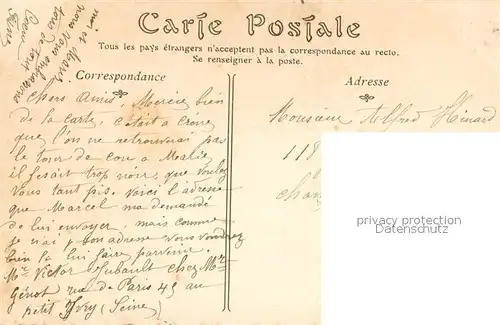 Carte Postale
Tous les pays étrangers n'acceptent pas la correspondance au recto.
Se renseigner à la poste.
Correspondance
Adresse
Chers Amis, Mercie bien
de la carte, c'était a croire
que l'on ne retrouverai pas
le tour de cou a Marie
il fesait trop noir, que voulez
vous tant pis. Voici l'adresse
que Marcel ma demandé
de lui envoyer, mais comme
je n'ai p son adresse vous voudrez
bien la lui faire parvenir.
Mr Victor Jubault chez Mr
Génot, rue de Paris 45 au
petit Ivry (Seine)
nous vous embrassons
tous de tout
Coeur
Monsieur Alfred Hinard
118
privacy protection
Datenschutz